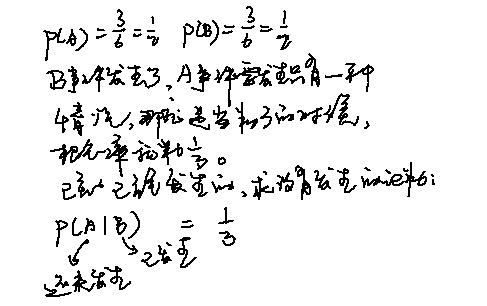 P(A) = 3/6 = 1/2 P(B) = 3/6 = 1/2
B事件发生了，A事件要发生只有一种
情况，那就是当扔了的时候，
概率都为1/3。
已知已经发生的，求没有发生的概率：
P(A|B) = 1/3
已发生
还未发生